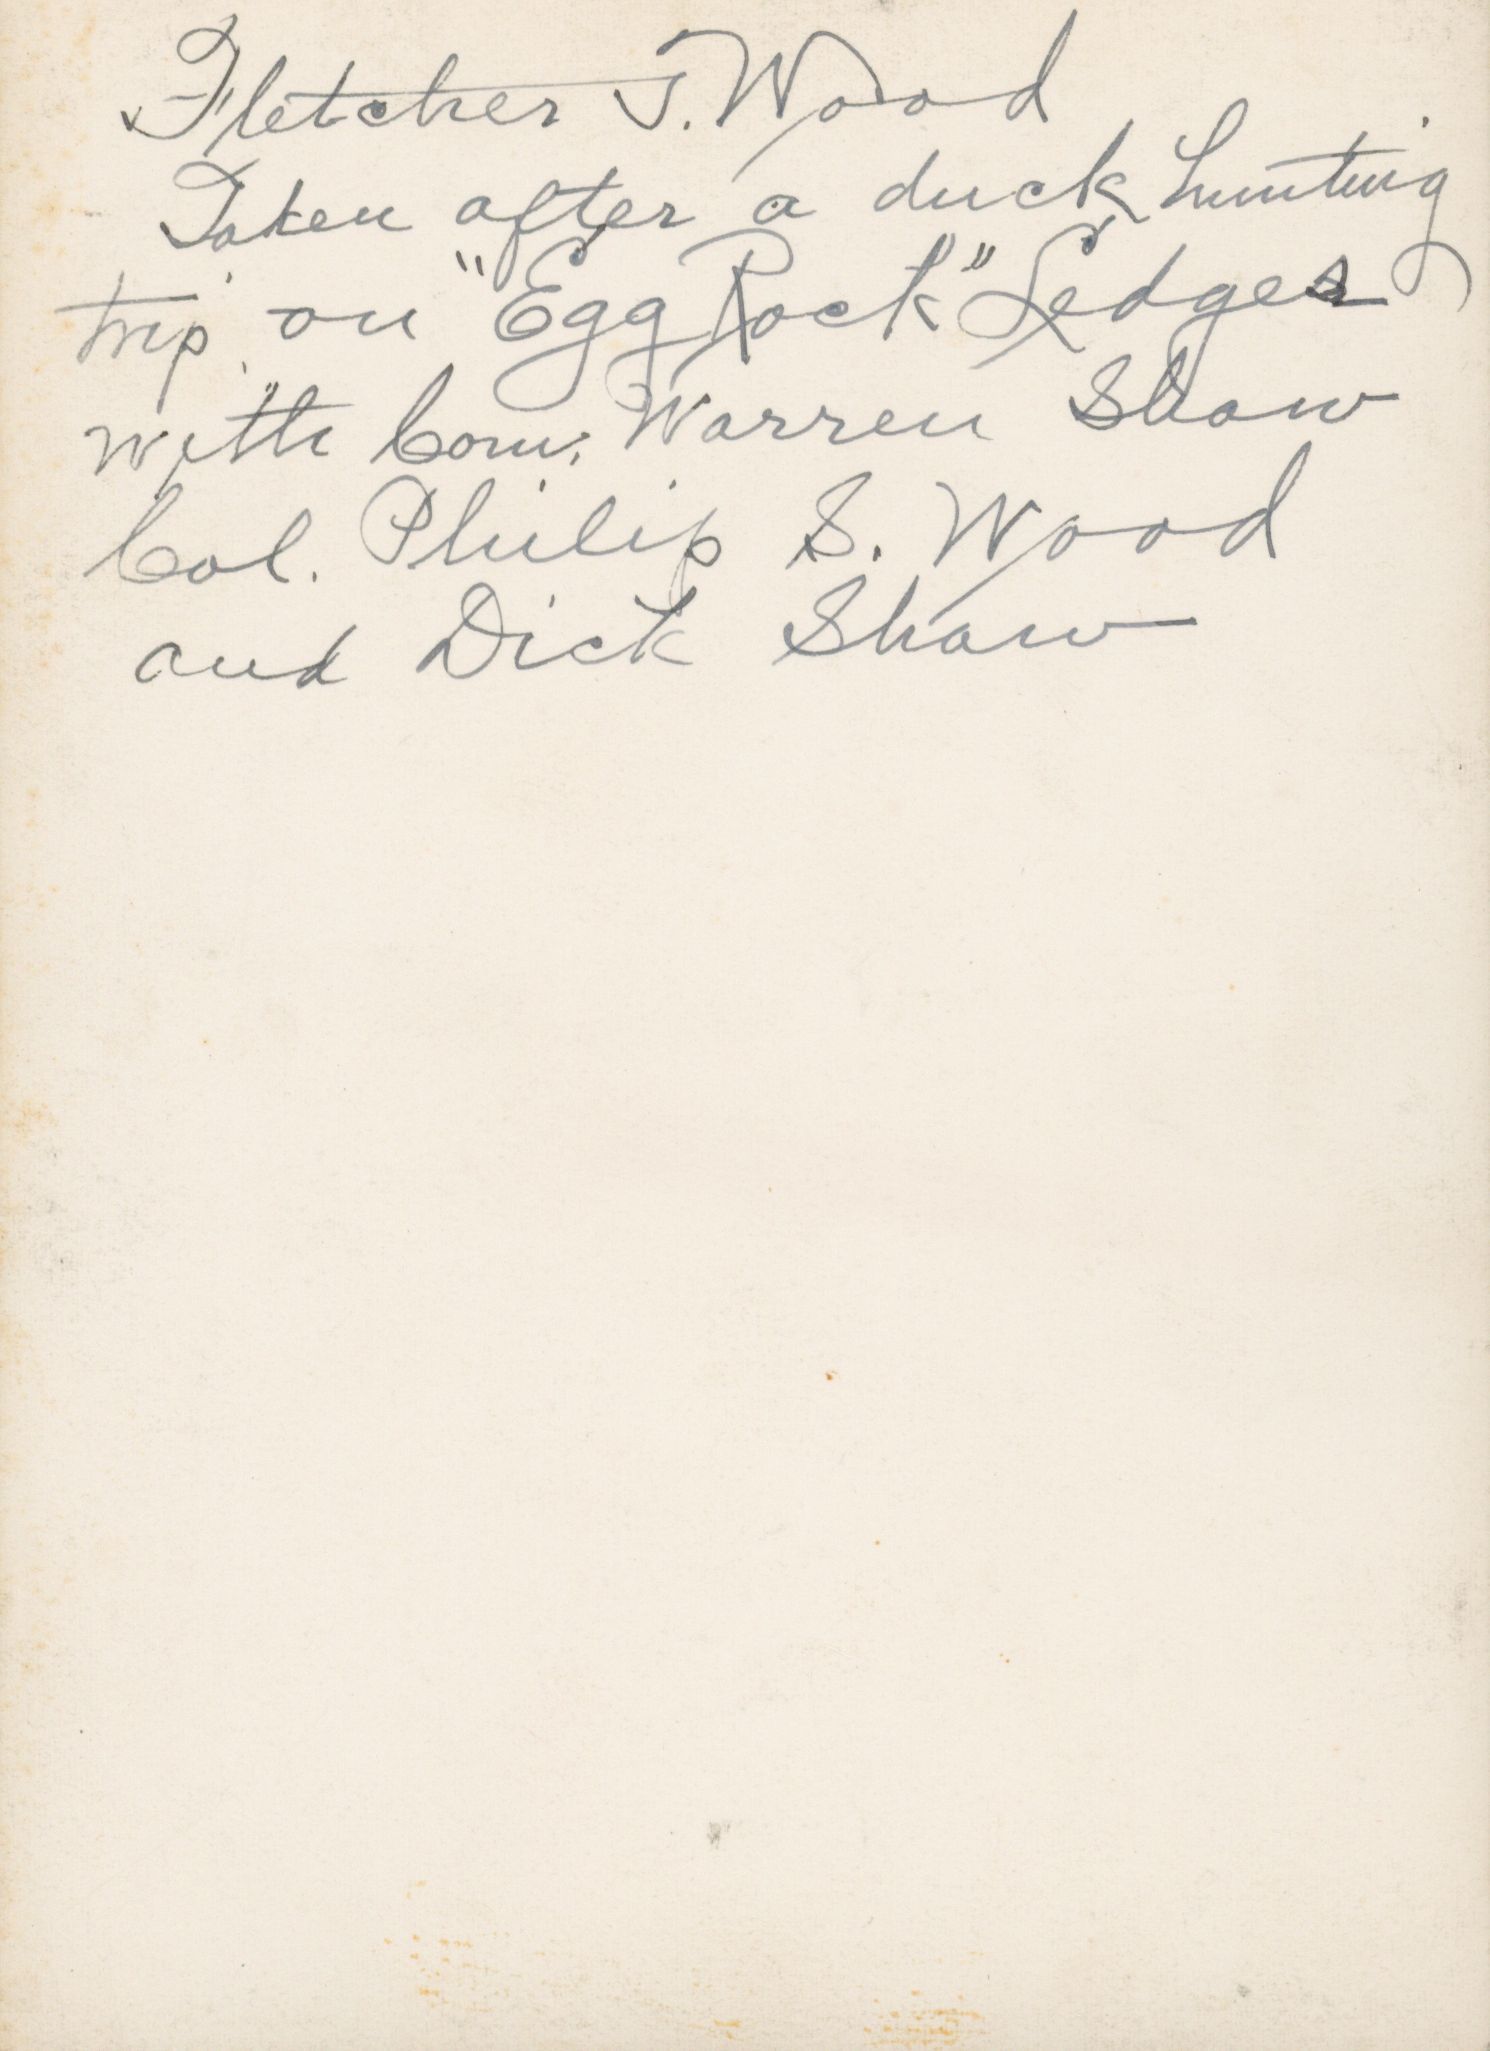 Fletcher T. Wood
Taken after a duck hunting
trip on "Egg Rock" Ledges
with Com. Warren Shaw
Col. Philip S. Wood
and Dick Shaw